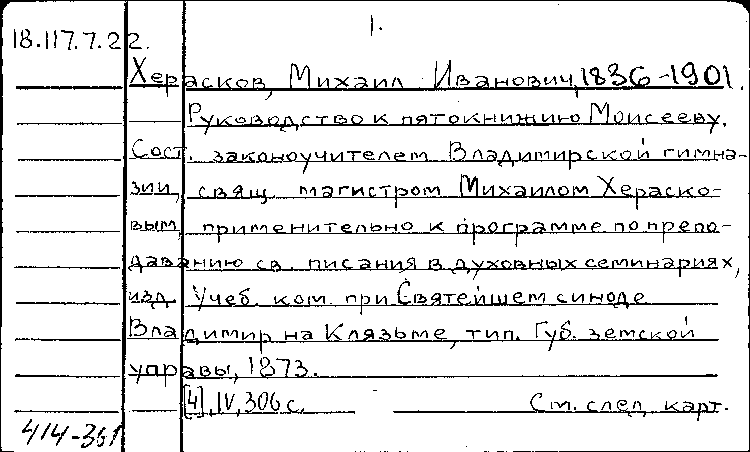 1.
18.117.7.22.
Херасков, Михаил Иванович, 1836-1901.
Руководство к пятокнижию Моисееву.
Сост. законоучителем Владимирской гимна-
зии, свящ. магистром Михаилом Хераско-
вым, применительно к программе по препо-
даванию св. писания в духовных семинариях,
изд. Учеб. ком. при Святейшем синоде
Владимир на Клязьме, тип. Губ. земской
управы, 1873.
[4], IV, 306 с. См. след. карт.
414-361